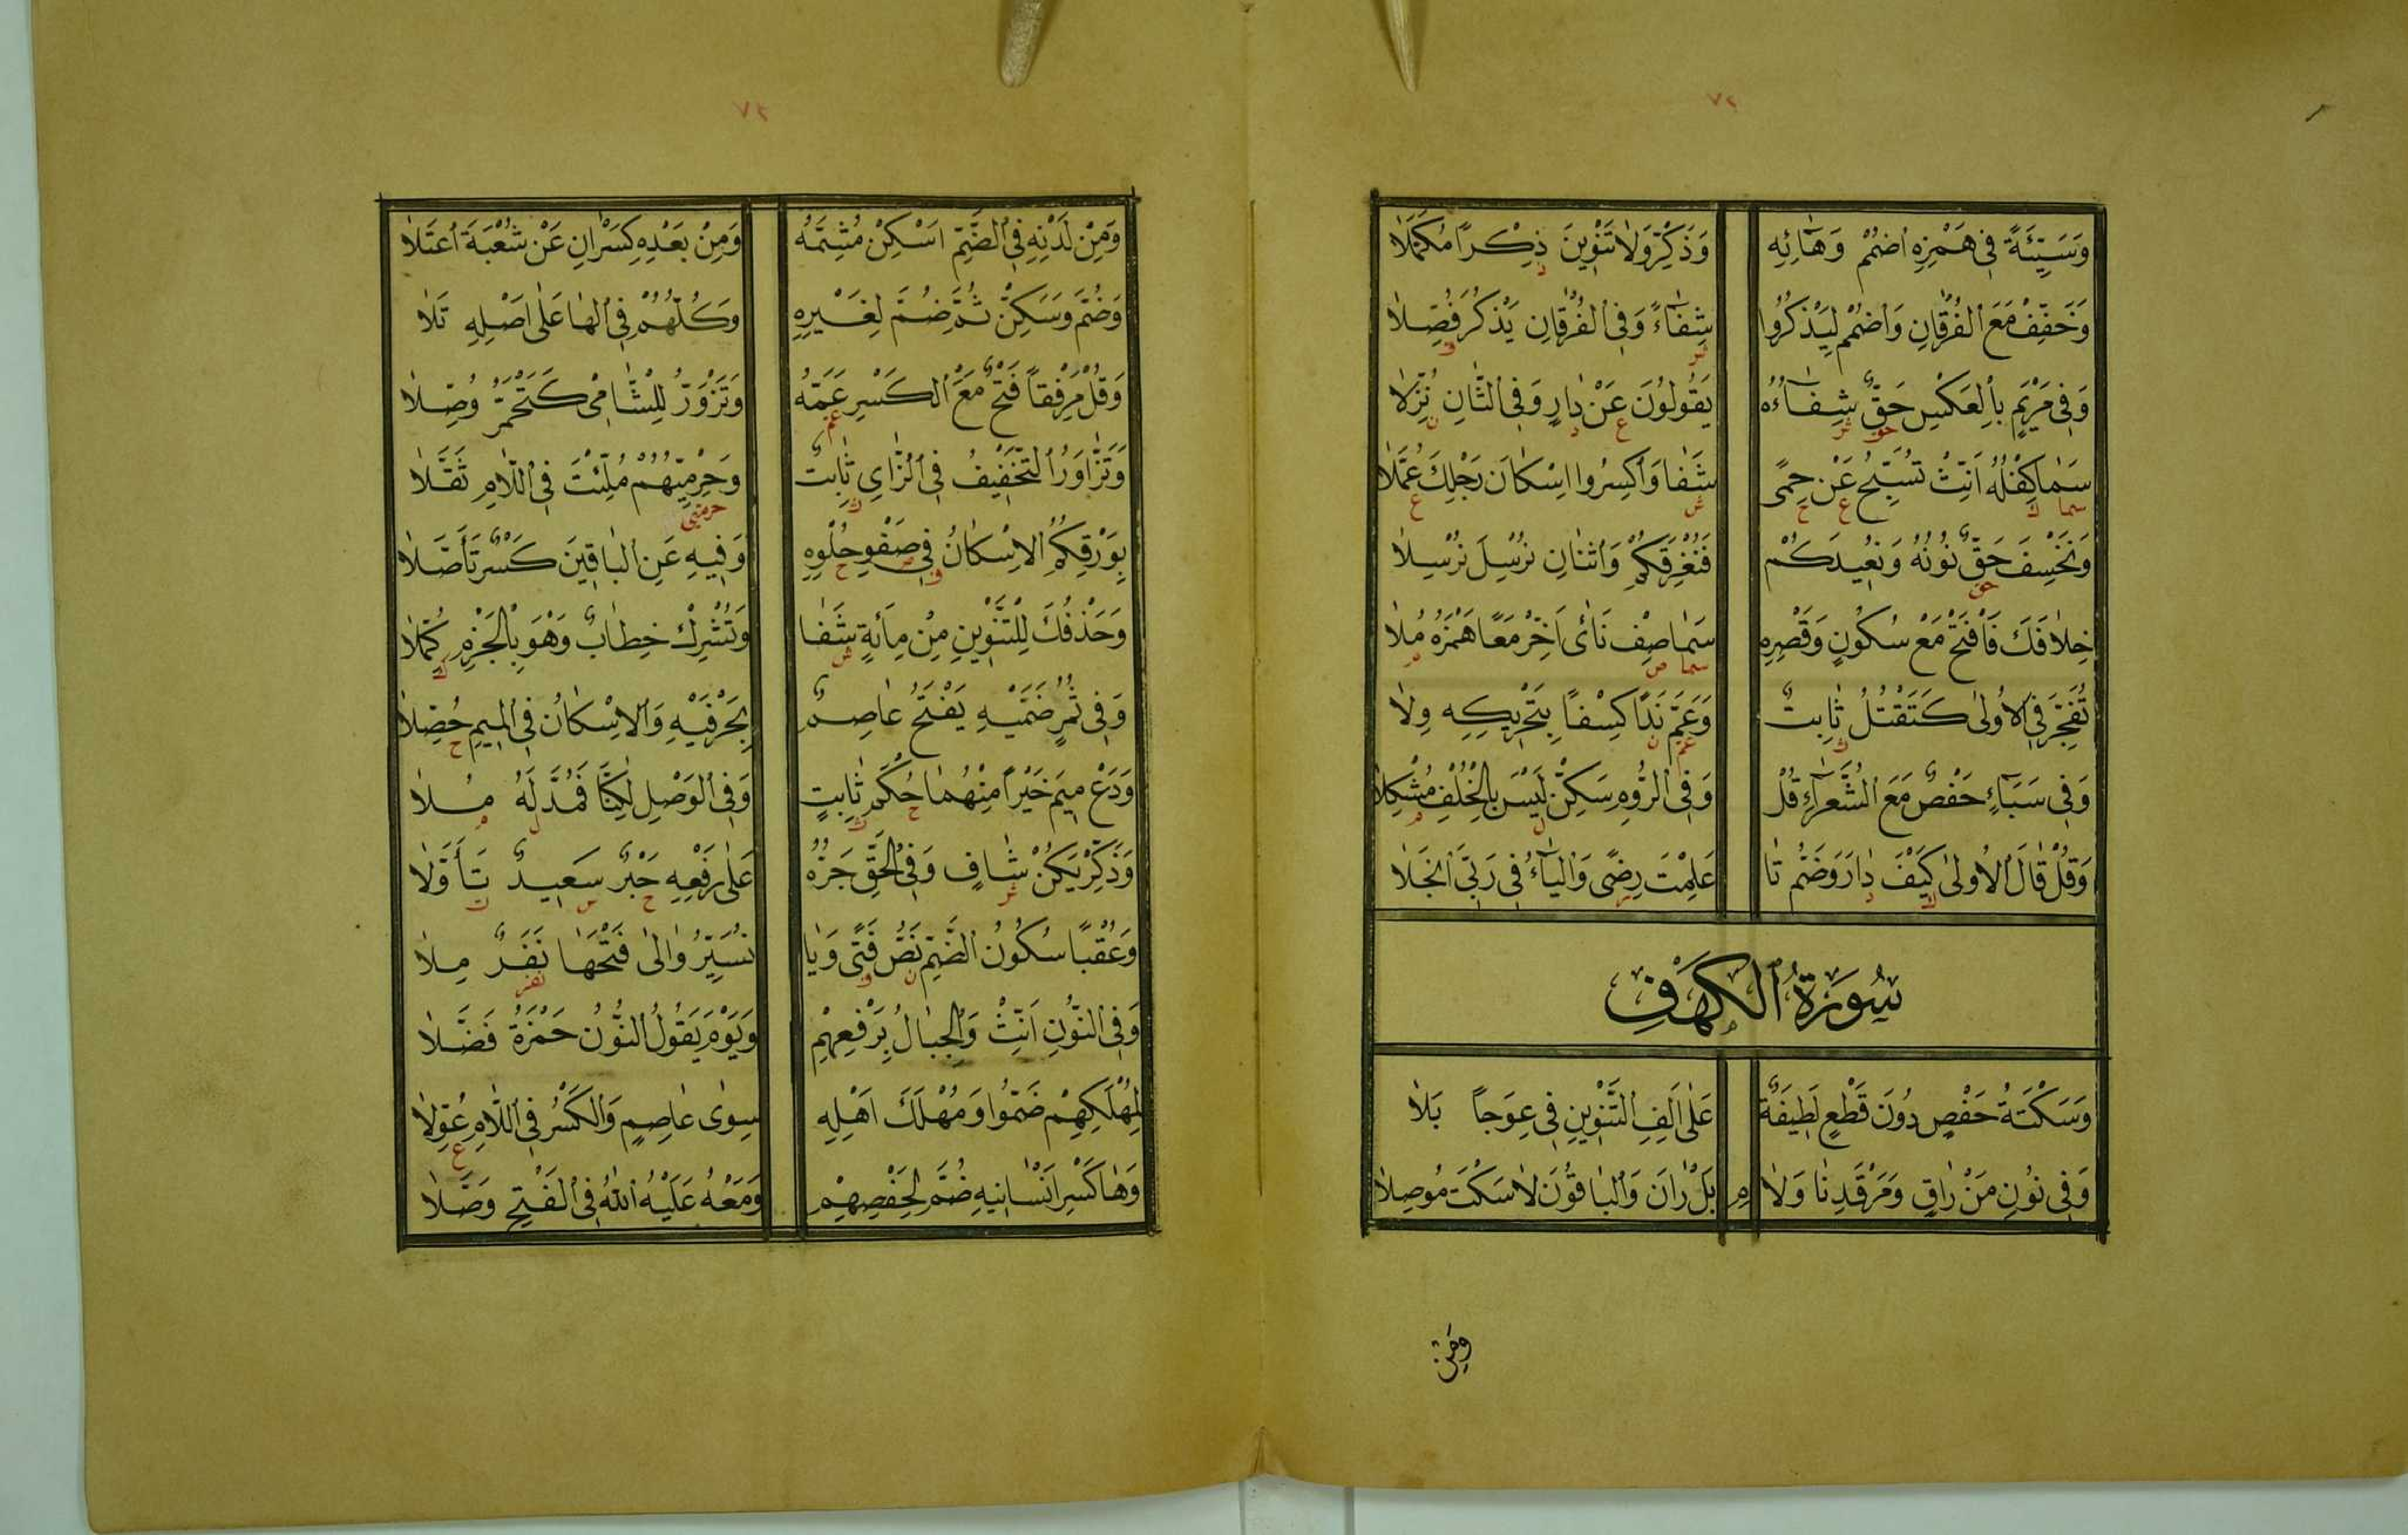 ٧٢
وَسَيِّئَةً فِي هَمْزِهِ اضْمُمْ وَهَائِهِ وَذَكِّرْ وَلَا تَنْوِينَ ذِكْرًا مُكَمَّلَا
وَخَفِّفْ مَعَ الْفُرْقَانِ وَاضْمُمْ لِيَذْكُرُوا شِفَاءً وَفِي الْفُرْقَانِ يَذْكُرَ فُصِّلَا
وَفِي مَرْيَمٍ بِالْعَكْسِ حَقٌّ شِفَاءُهُ يَقُولُونَ عَنْ دَارٍ وَفِي الثَّانِ نُزِّلَا
سَمَا كِفْلُهُ أَنِّثْ تُسَبِّحُ عَنْ حِمًى شَفَا وَاكْسِرُوا اسْكَانَ رَجْلِكَ عُمَّلَا
وَنَخْسِفَ حَقٌّ نُونُهُ وَنُعِيدَكُمْ فَنُغْرِقَكُمْ وَاثْنَانِ نُرْسِلَ نُرْسِلَا
خِلَافَكَ فَافْتَحْ مَعْ سُكُونٍ وَقَصْرِهِ سَمَا صِفْ نَأَى أَخِّرْ مَعًا هَمْزَهُ مُلَا
تُفَجِّرَ فِي الْأُولَى كَتَقْتُلُ ثَابِتٌ وَعَمَّ نَدًا كِسْفًا بِتَحْرِيكِهِ وِلَا
وَفِي سَبَاءٍ حَفْصٌ مَعَ الشُّعَرَاءِ قُلْ وَفِي الرُّومِ سَكِّنْ لَيْسَ بِالْخُلْفِ مُشْكِلَا
وَقُلْ قَالَ الْأُولَى كَيْفَ دَارَ وَضَمُّ تَا عَلِمْتَ رِضًى وَالْيَاءُ فِي رَبِّيَ انْجَلَا
سُورَةُ الْكَهْفِ
وَسَكْتَةُ حَفْصٍ دُونَ قَطْعٍ لَطِيفَةٌ عَلَى أَلِفِ التَّنْوِينِ فِي عِوَجًا بَلَا
وَفِي نُونِ مَنْ رَاقٍ وَمَرْقَدِنَا وَلَا مِ بَلْ رَانَ وَالْبَاقُونَ لَا سَكْتَ مُوصِلَا
وَمِنْ
٧٢
وَمِنْ لَدْنِهِ فِي الضَّمِّ اسْكِنْ مُشِمَّهُ وَمِنْ بَعْدِهِ كَسْرَانِ عَنْ شُعْبَةَ اعْتَلَا
وَضُمَّ وَسَكِّنْ ثُمَّ ضُمَّ لِغَيْرِهِ وَكُلُّهُمْ فِي الْهَا عَلَى أَصْلِهِ تَلَا
وَقُلْ مَرْفِقًا فَتْحٌ مَعَ الْكَسْرِ عَمَّهُ وَتَزْوَرُّ لِلشَّامِي كَتَحْمَرُّ وُصِّلَا
وَتَزَّاوَرُ التَّخْفِيفُ فِي الزَّايِ ثَابِتٌ وَحِرْمِيُّهُمْ مُلِّئْتَ فِي اللَّامِ ثَقَّلَا
بِوَرْقِكُمُ الْإِسْكَانُ فِي صَفْوِ حُلْوِهِ وَفِيهِ عَنِ الْبَاقِينَ كَسْرٌ تَأَصَّلَا
وَحَذْفُكَ لِلتَّنْوِينِ مِنْ مِائَةٍ شَفَا وَتُشْرِكْ خِطَابٌ وَهْوَ بِالْجَزْمِ كُمِّلَا
وَفِي ثُمُرٍ ضَمَّيْهِ يَفْتَحُ عَاصِمٌ بِحَرْفَيْهِ وَالْإِسْكَانُ فِي الْمِيمِ حُصِّلَا
وَدَعْ مِيمَ خَيْرًا مِنْهُمَا حُكْمَ ثَابِتٍ وَفِي الْوَصْلِ لَكِنَّا فَمُدَّ لَهُ مُلَا
وَذَكِّرْ يَكُنْ شَافٍ وَفِي الْحَقِّ جَرُّهُ عَلَى رَفْعِهِ حَبْرٌ سَعِيدٌ تَأَوَّلَا
وَعُقْبًا سُكُونُ الضَّمِّ نَصُّ فَتًى وَيَا نُسَيِّرُ وَالَى فَتْحَهَا نَفَرٌ مِلَا
وَفِي النُّونِ أَنِّثْ وَالْجِبَالُ بِرَفْعِهِمْ وَيَوْمَ يَقُولُ النُّونُ حَمْزَةُ فَضَّلَا
لِمُهْلَكِهِمْ ضَمُّوا وَمُهْلَكَ أَهْلِهِ سِوَى عَاصِمٍ وَالْكَسْرُ فِي اللَّامِ عُوِّلَا
وَهَا كَسْرِ أَنْسَانِيهِ ضُمَّ لِحَفْصِهِمْ وَمَعْهُ عَلَيْهُ اللَّهَ فِي الْفَتْحِ وَصَّلَا